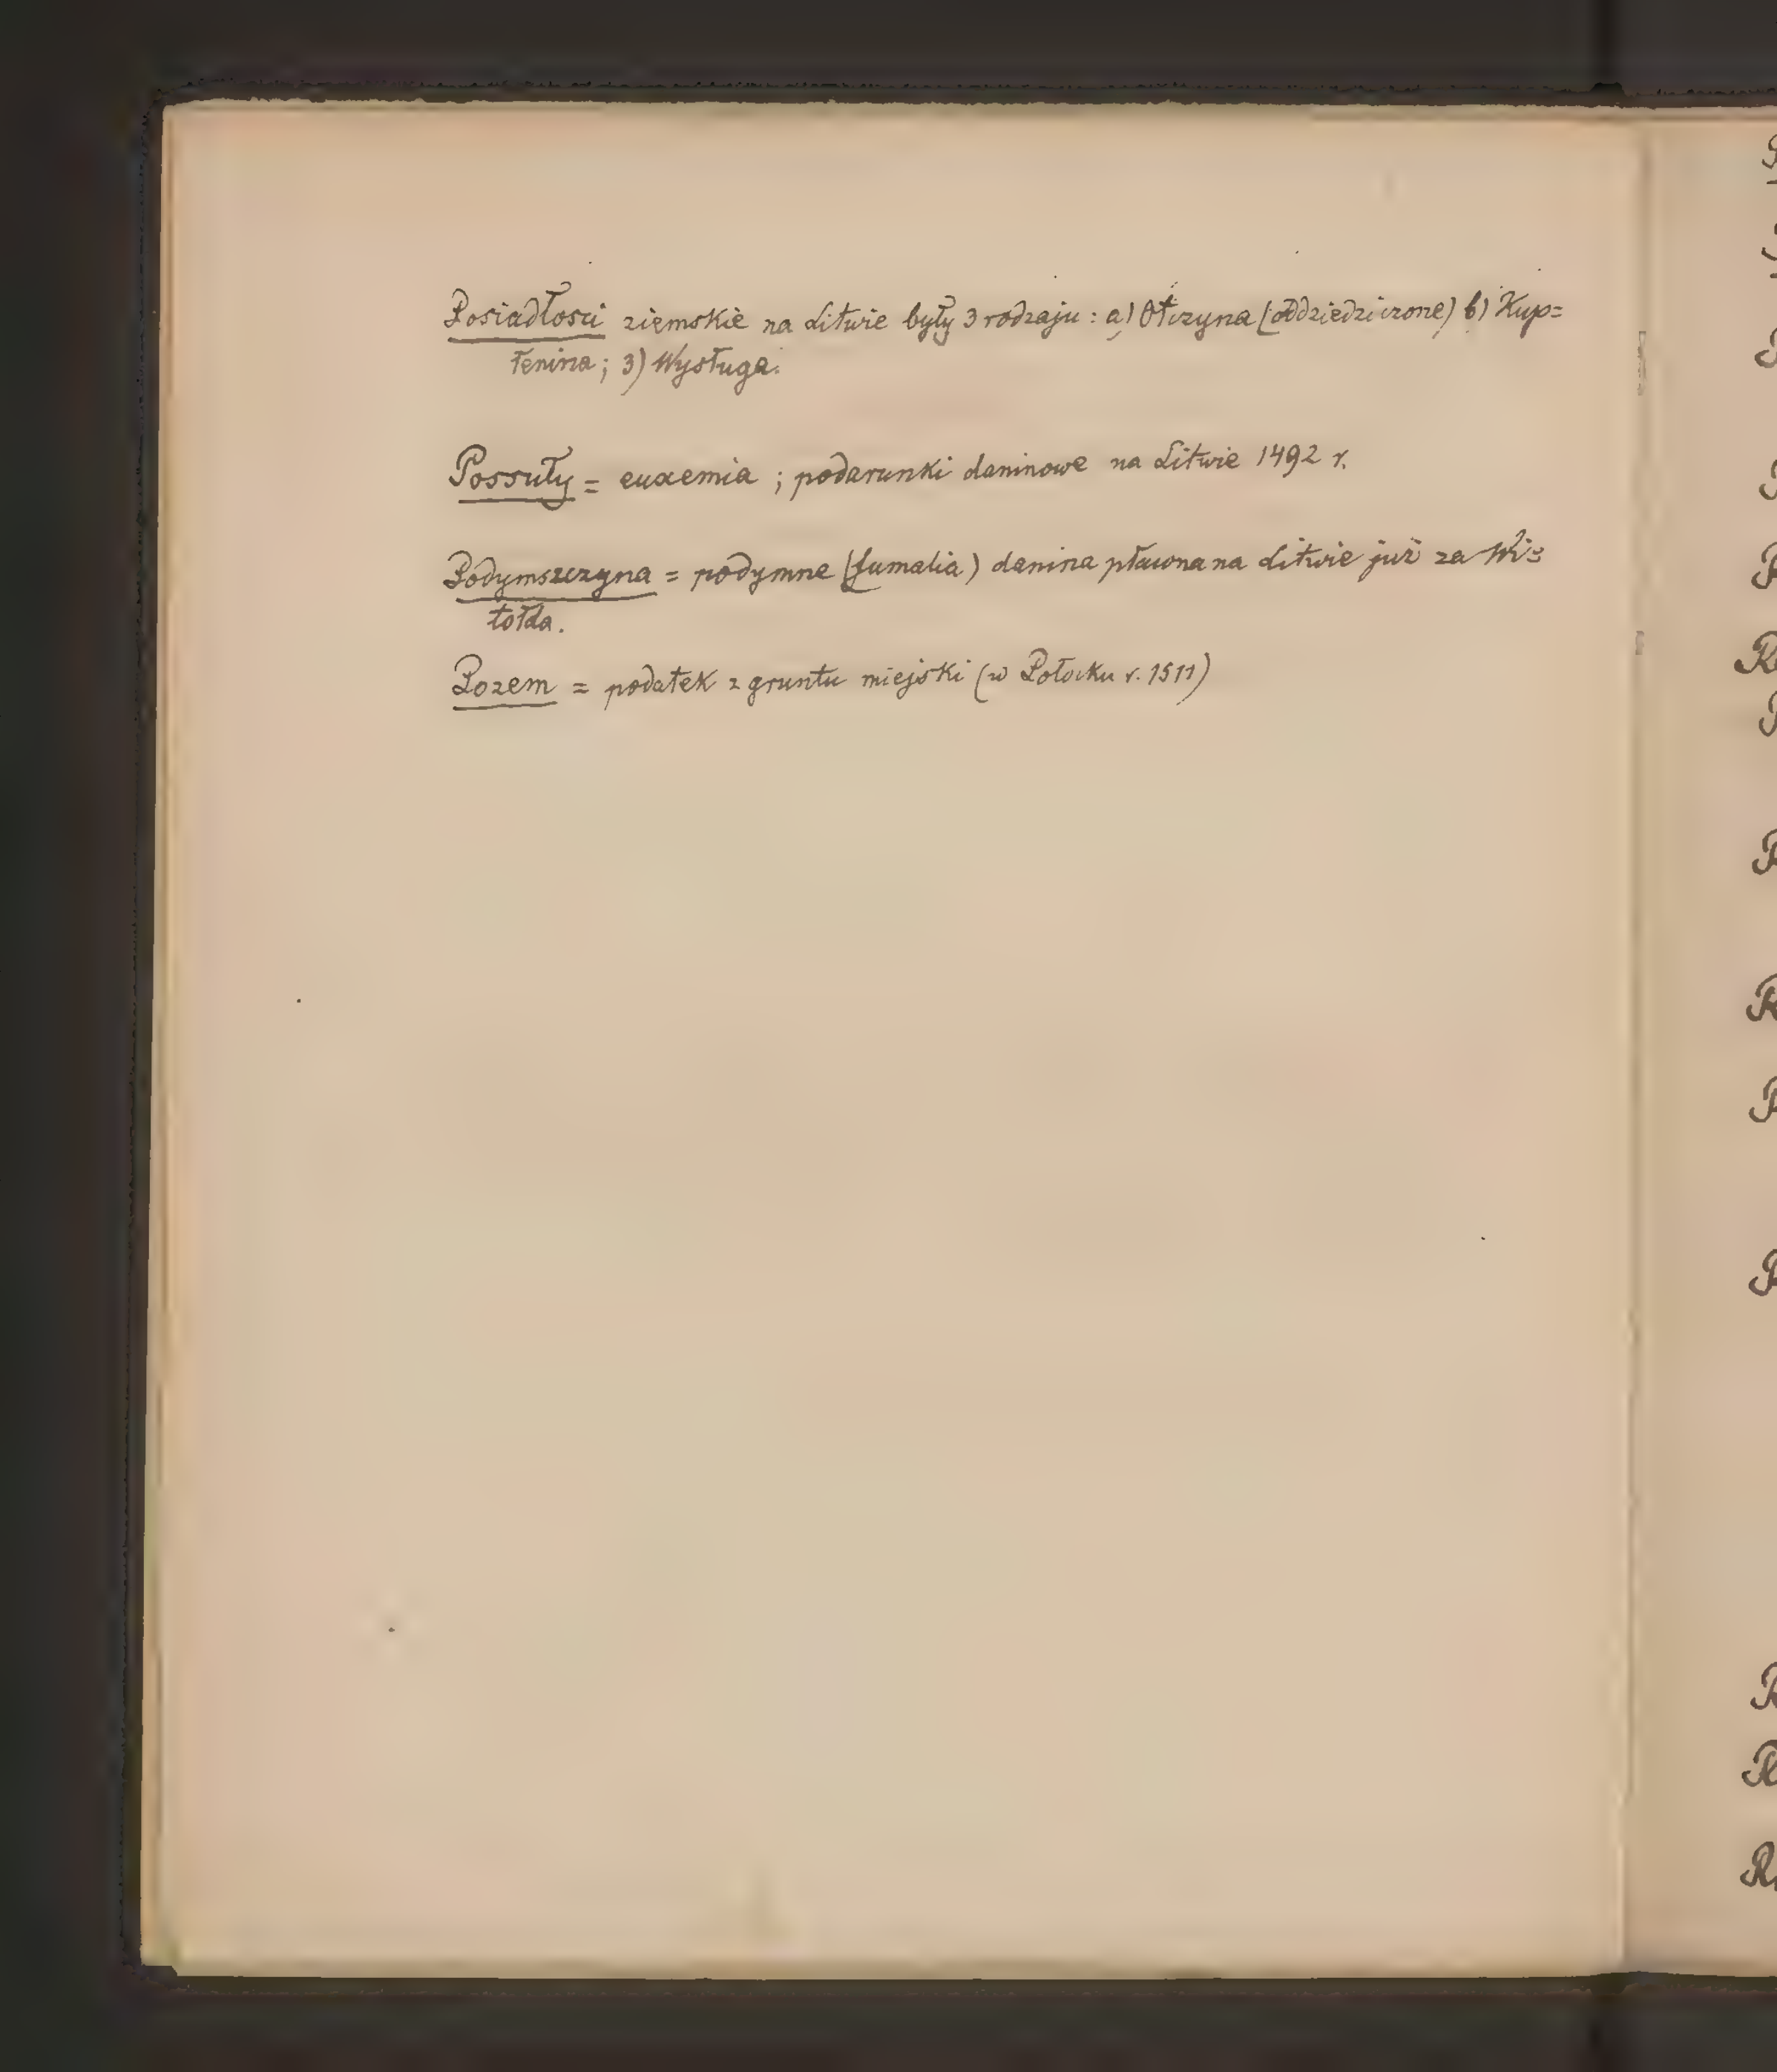 Posiadłości ziemskie na Litwie były 3 rodzaju : a) Otczyna (oddziedziczone) b) Kup=
łenina ; 3) Wysługa.
Possuły = euxemia ; podarunki daninowe na Litwie 1492 r.
Podymszczyna = podymne (fumalia) danina płacona na Litwie już za Wi=
tołda.
Pozem = podatek z gruntu miejski (w Połocku r. 1511)